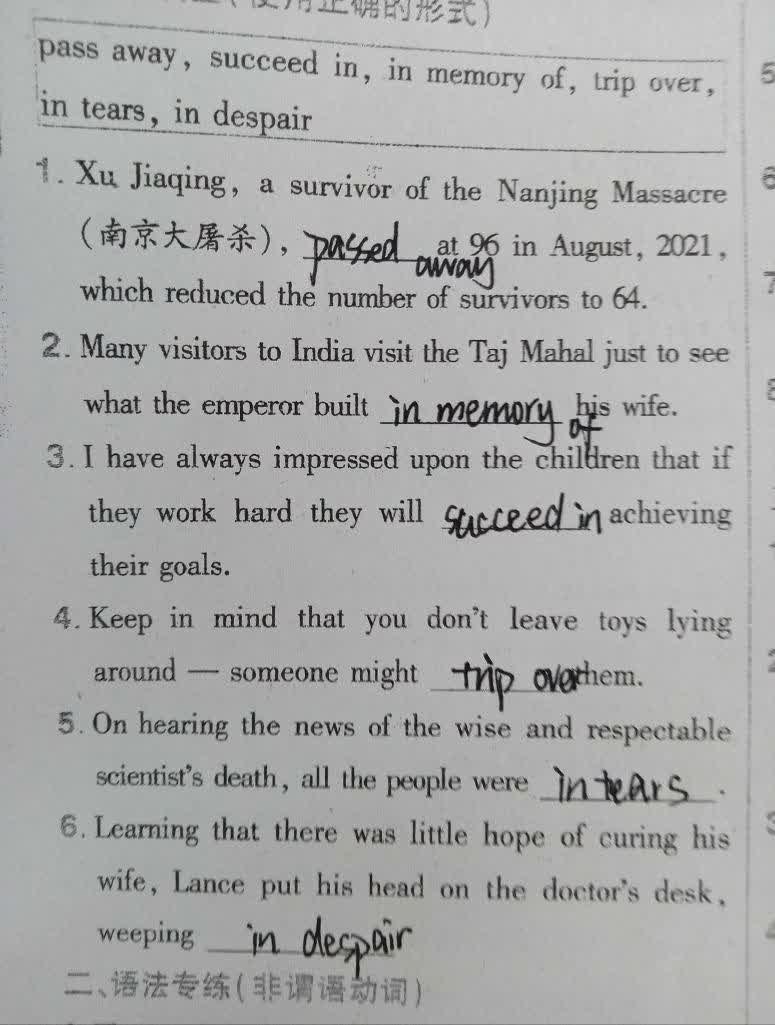 正确的形式)
pass away, succeed in, in memory of, trip over,
in tears, in despair
1. Xu Jiaqing, a survivor of the Nanjing Massacre
(南京大屠杀), passed away at 96 in August, 2021,
which reduced the number of survivors to 64.
2. Many visitors to India visit the Taj Mahal just to see
what the emperor built in memory of his wife.
3. I have always impressed upon the children that if
they work hard they will succeed in achieving
their goals.
4. Keep in mind that you don't leave toys lying
around — someone might trip over them.
5. On hearing the news of the wise and respectable
scientist's death, all the people were in tears.
6. Learning that there was little hope of curing his
wife, Lance put his head on the doctor's desk,
weeping in despair
二、语法专练(非谓语动词)